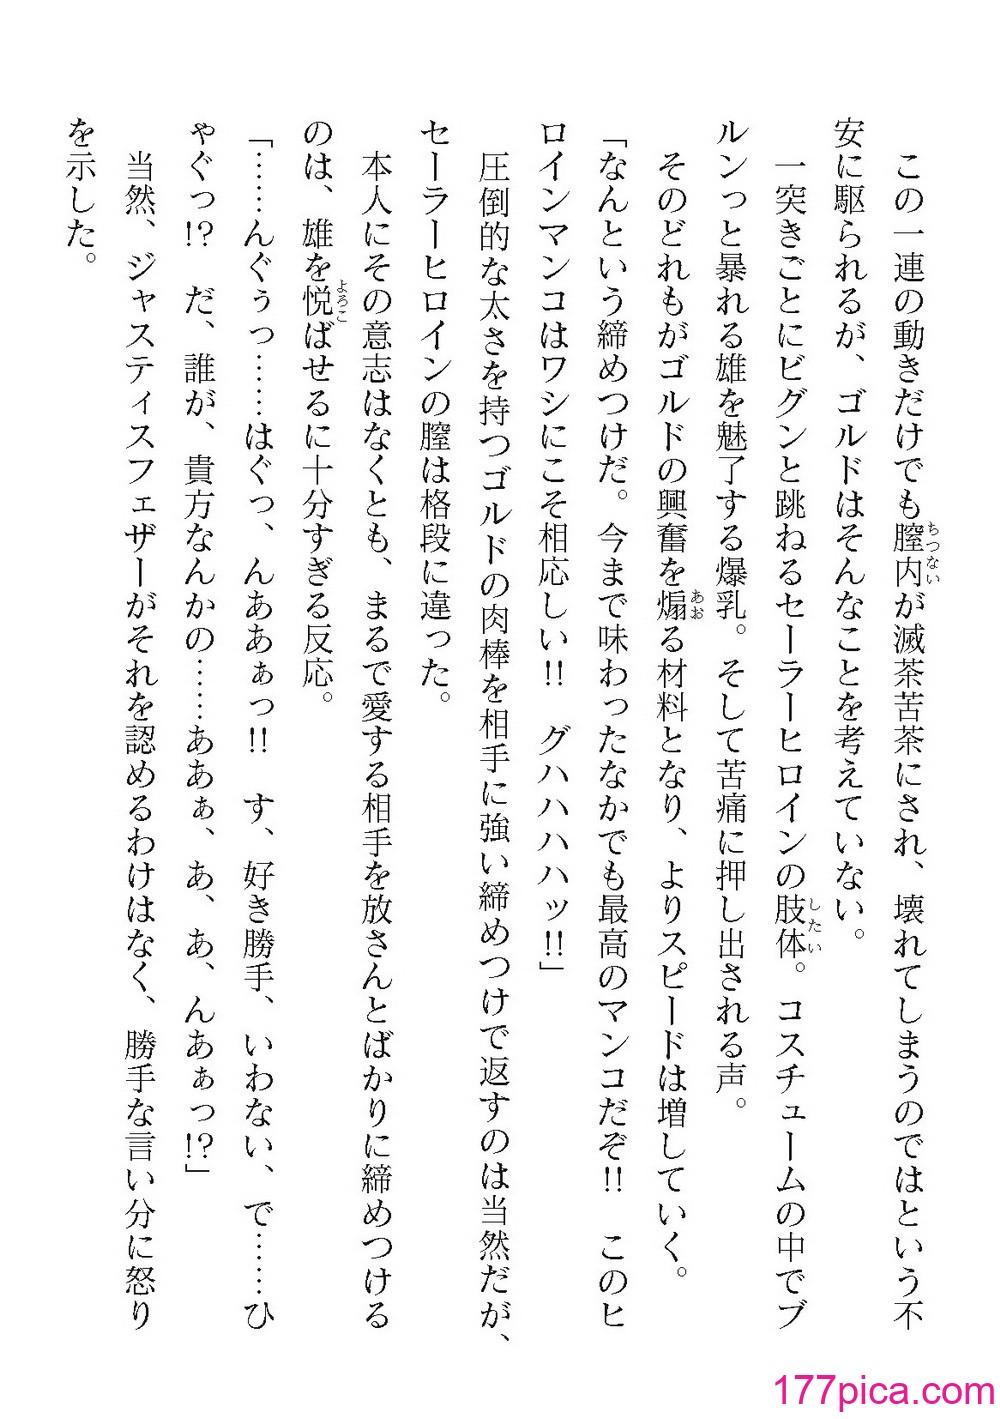 この一連の動きだけでも膣内が滅茶苦茶にされ、壊れてしまうのではという不
安に駆られるが、ゴルドはそんなことを考えていない。
一突きごとにビグンと跳ねるセーラーヒロインの肢体。コスチュームの中でブ
ルンっと暴れる雄を魅了する爆乳。そして苦痛に押し出される声。
そのどれもがゴルドの興奮を煽る材料となり、よりスピードは増していく。
「なんという締めつけだ。今まで味わったなかでも最高のマンコだぞ!! このヒ
ロインマンコはワシにこそ相応しい!! グハハハハッ!!」
圧倒的な太さを持つゴルドの肉棒を相手に強い締めつけで返すのは当然だが、
セーラーヒロインの膣は格段に違った。
本人にその意志はなくとも、まるで愛する相手を放さんとばかりに締めつける
のは、雄を悦ばせるに十分すぎる反応。
「……んぐぅっ……はぐっ、んああぁっ!! す、好き勝手、いわない、で……ひ
ゃぐっ!? だ、誰が、貴方なんかの……ああぁ、あ、あ、んあぁっ!?」
当然、ジャスティスフェザーがそれを認めるわけはなく、勝手な言い分に怒り
を示した。
ちつない
したい
あお
よろこ
177pica.com